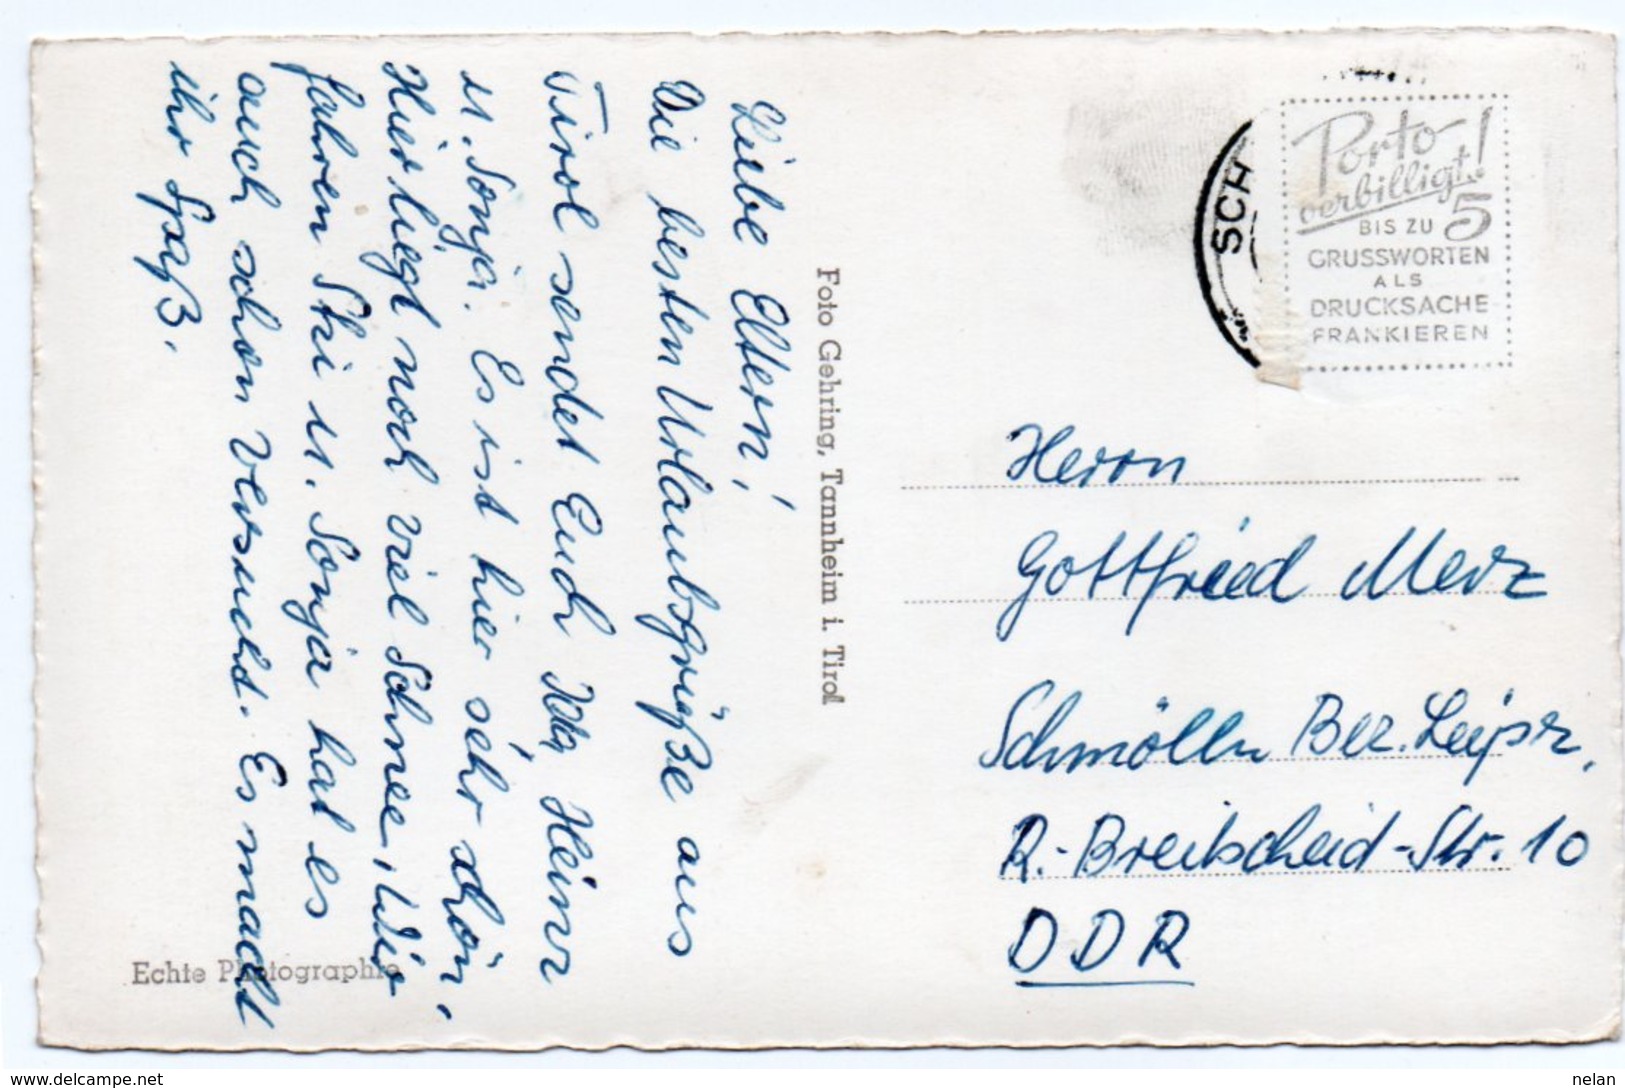 Liebe Eltern!
Die besten Urlaubsgrüße aus
Tirol sendet Euch Heinz
u. Sonja. Es ist hier sehr schön,
Hier liegt noch viel Schnee, Wir
fahren Ski u. Sonja hat es
auch schon versucht. Es macht
ihr Spaß.
Echte Photographie
Foto Gehring, Tannheim i. Tirol
SCH
Porto
verbilligt!
BIS ZU 5
GRUSSWORTEN
ALS
DRUCKSACHE
FRANKIEREN
Herrn
Gottfried Merz
Schmölln Bez. Leipz.
R.-Breitscheid-Str. 10
DDR
www.delcampe.net
nelan